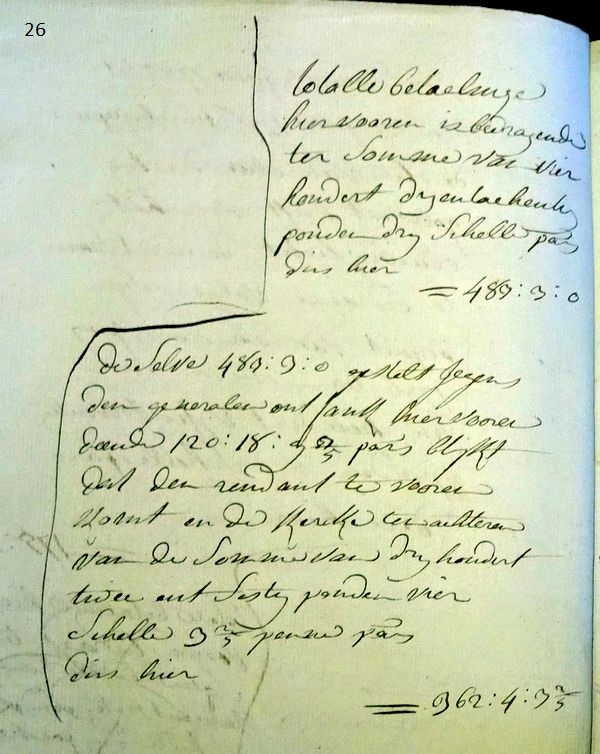 26
totalle betaelinge
hier vooren is bedragende
ter Somme van vier
hondert dryentachentig
ponden dry Schelle pars
dus hier
= 483:3:0
de Selve 483:3:0 gestelt jegens
den generalen ontfank hier vooren
doende 120:18: pars blijkt
dat den rendant te vooren
komt en de kerke ten achteren
van de Somme van dry hondert
twee ent Sestig ponden vier
Schelle 3 2/5 penne pars
dus hier
= 362:4:3 2/5